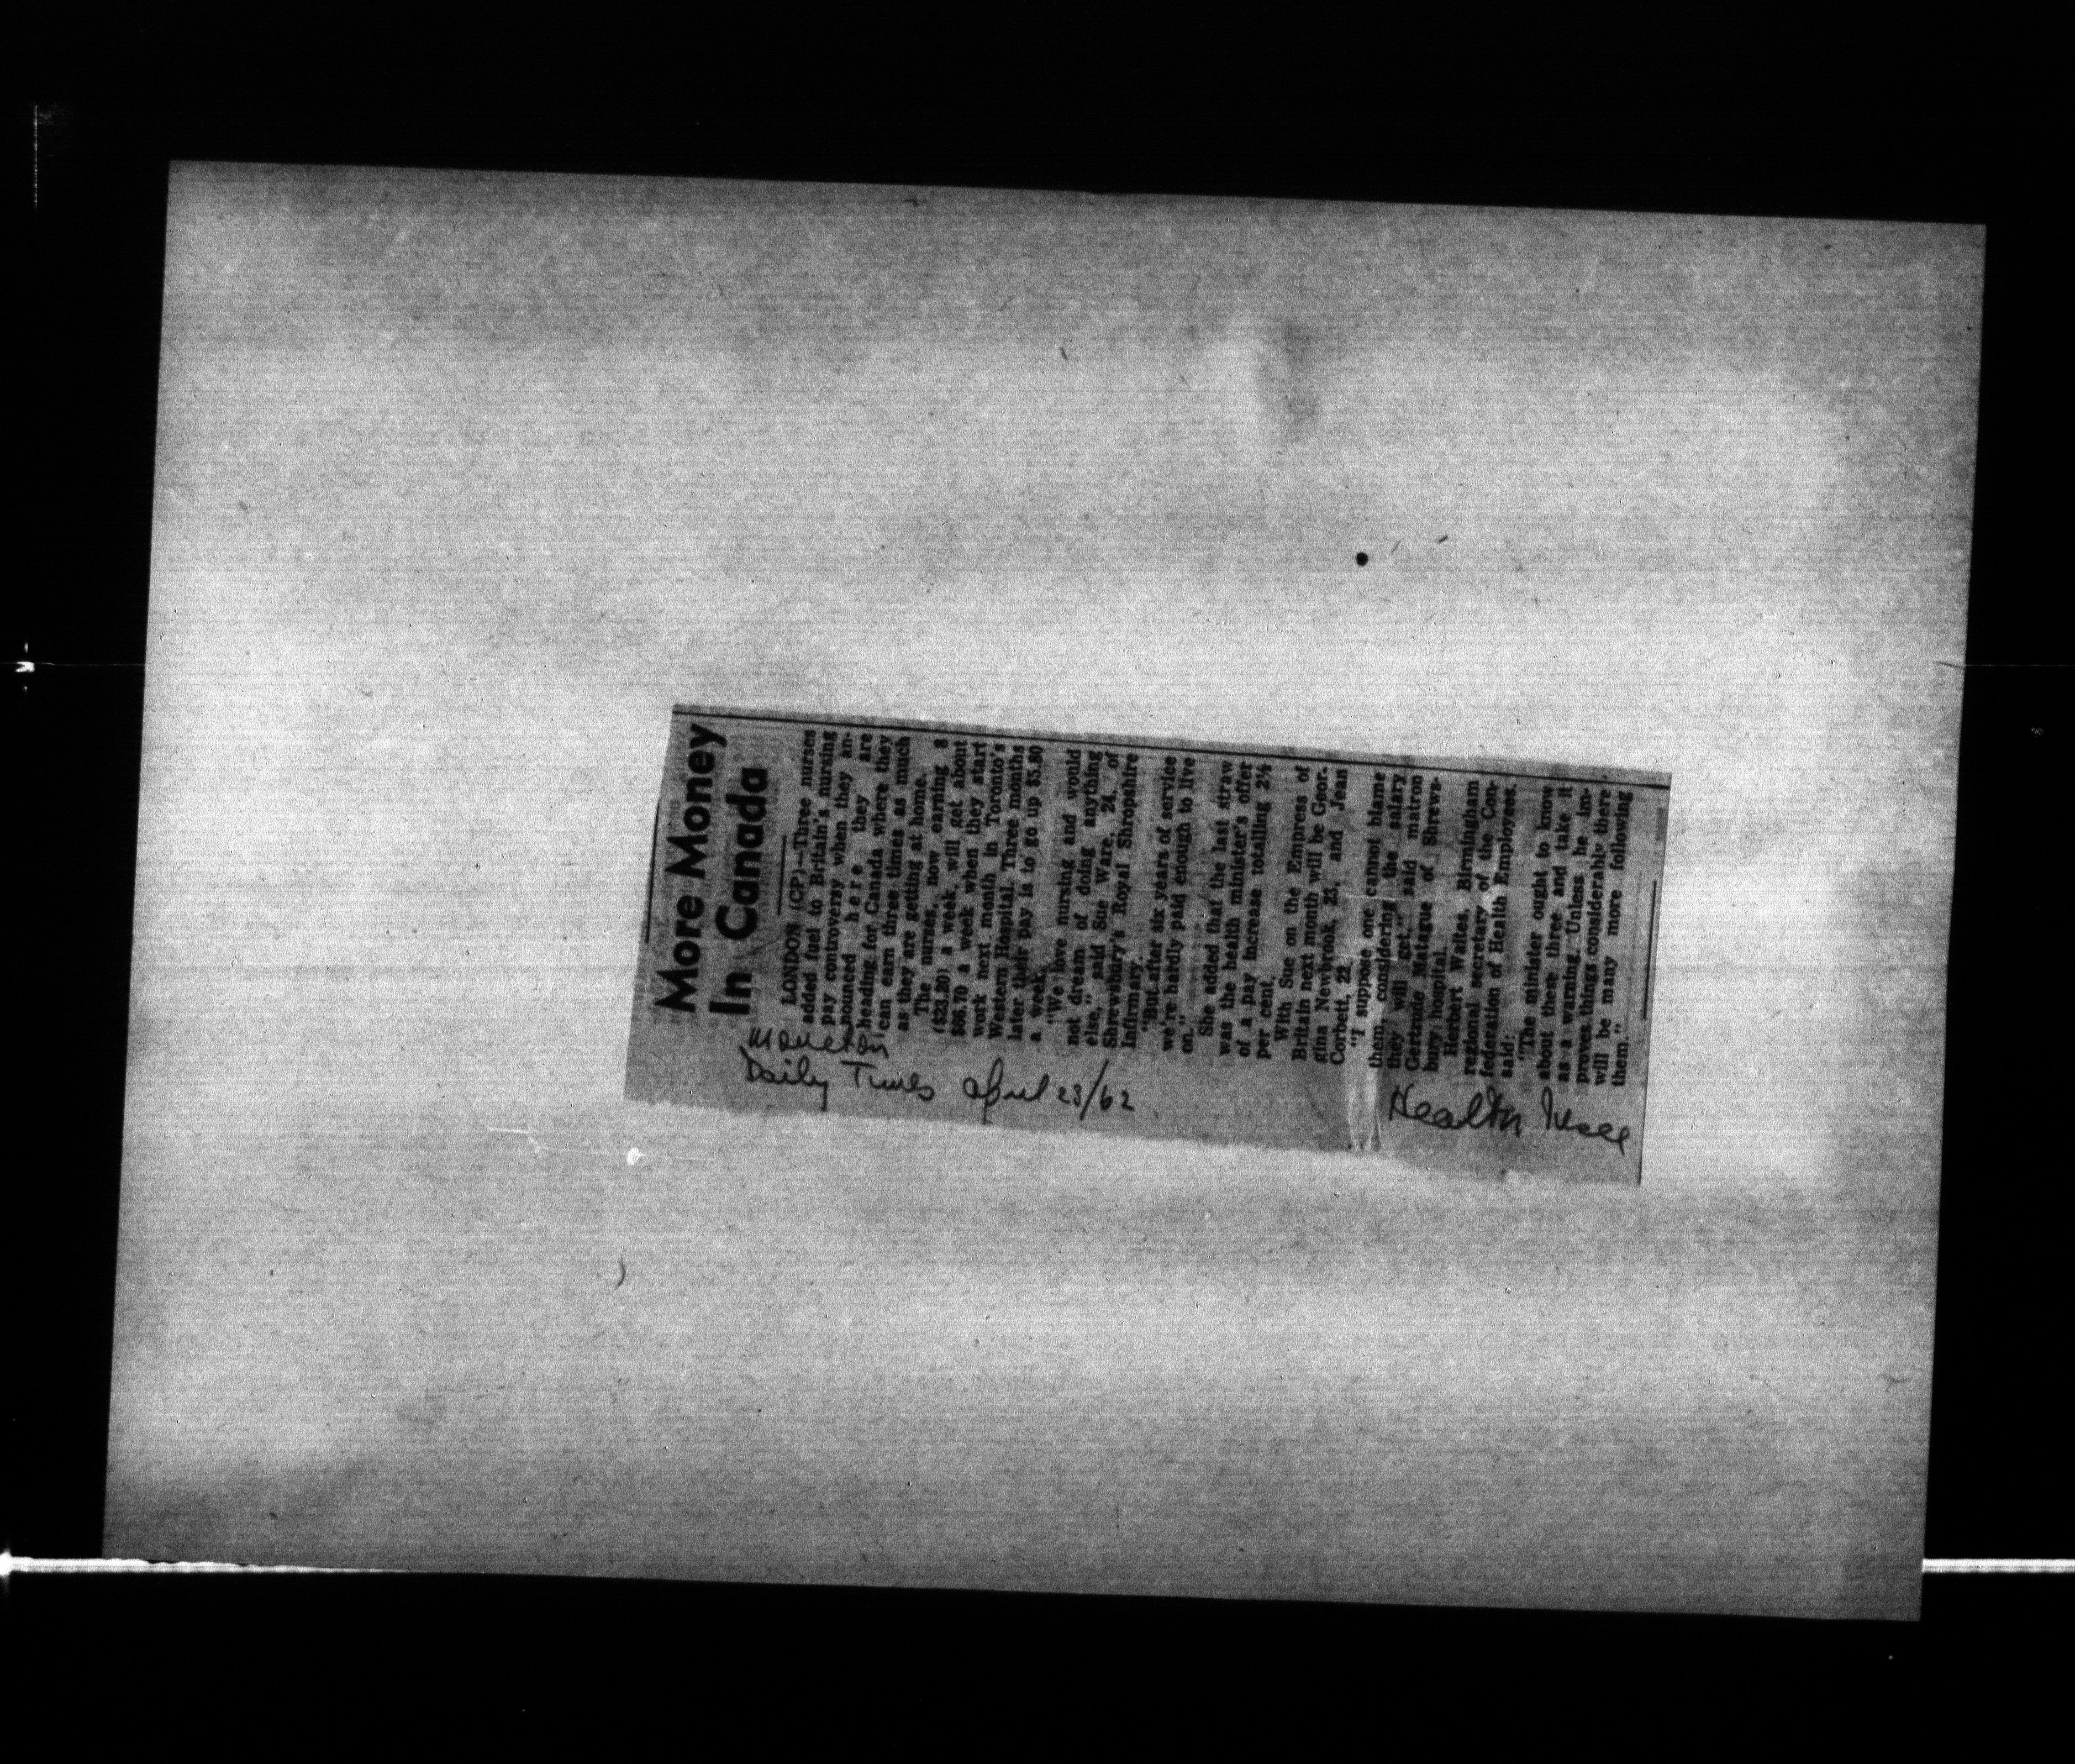 More Money
In Canada
LONDON (CP)—Three nurses
added fuel to Britain's nursing
pay controversy when they an-
nounced here they are
heading for Canada where they
can earn three times as much
as they are getting at home.
The nurses, now earning 8
($23.20) a week, will get about
$66.70 a week when they start
work next month in Toronto's
Western Hospital. Three months
later their pay is to go up $5.80
a week.
"We love nursing and would
not dream of doing anything
else," said Sue Ware, 24, of
Shrewsbury's Royal Shropshire
Infirmary.
"But after six years of service
we're hardly paid enough to live
on."
She added that the last straw
was the health minister's offer
of a pay increase totalling 2½
per cent.
With Sue on the Empress of
Britain next month will be Geor-
gina Newbrook, 23, and Jean
Corbett, 22.
"I suppose one cannot blame
them, considering the salary
they will get," said matron
Gertrude Matague of Shrews-
bury hospital.
Herbert Waites, Birmingham
regional secretary of the Con-
federation of Health Employees,
said:
"The minister ought to know
about these three and take it
as a warning. Unless he im-
proves things considerably there
will be many more following
them."
Moncton
Daily Times April 23/62
Health